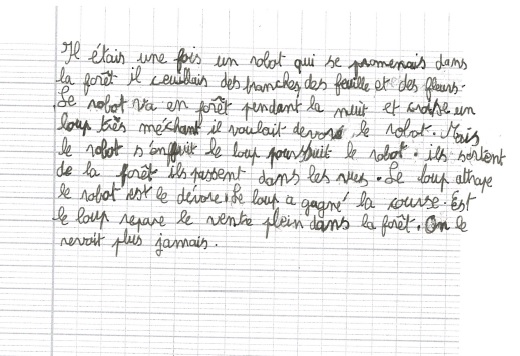 Il étais une fois un robot qui se promenais dans
la forêt il ceuillais des branches, des feuille et des fleurs.
Le robot va en forêt pendant la nuit et croise un
loup très méchant il voulait devoré le robot. Mais
le robot s'enffuit le loup poursuit le robot. ils sortent
de la forêt ils passent dans les rues. Le loup attrape
le robot est le dévore. Le loup a gagné la course. Est
le loup repare le ventre plein dans la forêt. On le
revoit plus jamais.